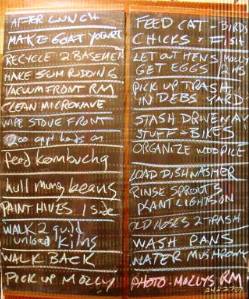 AFTER LUNCH
MAKE GOAT YOGURT
RECYCLE 2 BASEMENT
MAKE SUM PUDDING
VACUUM FRONT RM
CLEAN MICROWAVE
WIPE STOVE FRONT
feed kombucha
hull mung beans
PAINT HIVES 1 side
WALK 2 guild
unload kilns
WALK BACK
PICK UP MOLLY
FEED CAT - BIRDS
CHICKS + FISH
LET OUT HENS/MOLLY
GET EGGS
PICK UP TRASH
IN DEBS YARD
STASH DRIVEWAY
STUFF - BIKES
ORGANIZE WOODPILE
LOAD DISHWASHER
RINSE SPROUTS
PLANT LIGHTS ON
OLD 2 TRASH
WASH PANS
WATER MUSHROOM
PHOTO MOLLYS RM